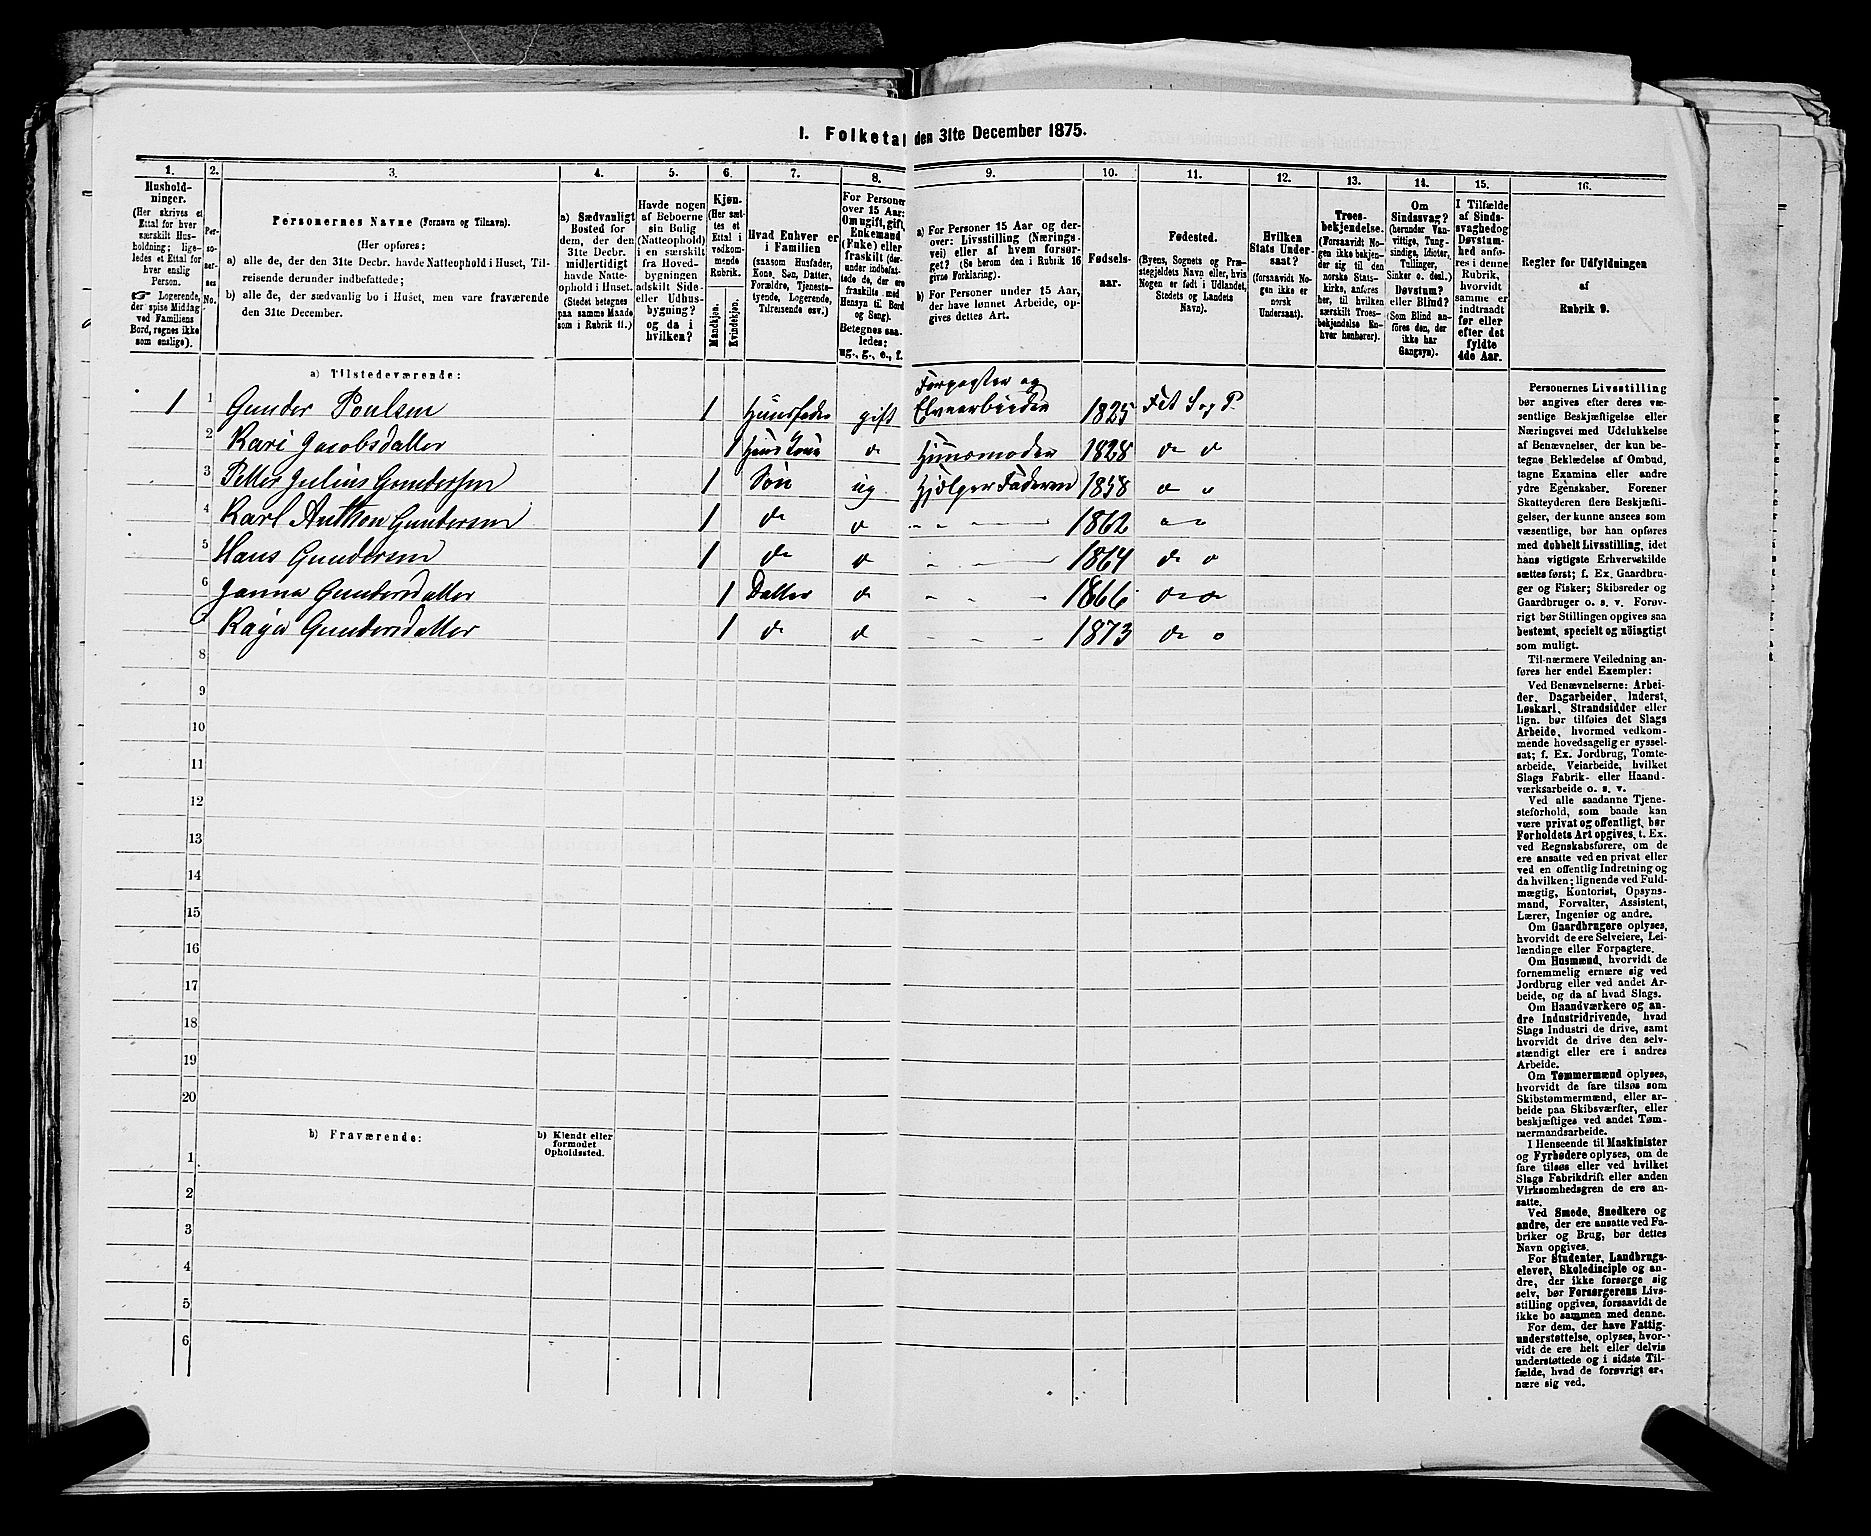 1. Folketa den 31te December 1875.
1. 2. 3. 4. 5. 6. 7. 8. 9. 10. 11. 12. 13. 14. 15. 16.
Hushold-
ninger.
(Her skrives et
Ettal for hver
særskilt Hus-
holdning; lige-
ledes et Ettal for
hver enslig
Person.
☞ Logerende,
der spise Middag
ved Familiens
Bord, regnes ikke
som enslige).
Per-
so-
ner-
nes
No.
Personernes Navne (Fornavn og Tilnavn).
(Her opføres:
a) alle de, der den 31te Decbr. havde Natteophold i Huset, Til-
reisende derunder indbefattede;
b) alle de, der sædvanlig bo i Huset, men vare fraværende
den 31te December.
a) Sædvanligt
Bosted for
dem, der den
31te Decbr.
midlertidigt
havde Natte-
ophold i Huset.
(Stedet betegnes
paa samme Maade
som i Rubrik 11.)
Havde nogen
af Beboerne
sin Bolig
(Natteophold)
i en særskilt
fra Hoved-
bygningen
adskilt Side-
eller Udhus-
bygning?
og da i
hvilken?
Kjøn.
(Her sæt-
tes et
Ettal i
vedkom-
mende
Rubrik.
Mandkjøn.
Kvindekjøn.
Hvad Enhver er
i Familien
(saasom Husfader,
Kone, Søn, Datter,
Forældre, Tjeneste-
tyende, Logerende,
Tilreisende osv.)
For Personer
over 15 Aar:
Om ugift, gift,
Enkemand
(Enke) eller
fraskilt (der-
under indbefat-
tede de, der ere
fraskilte med
Hensyn til Bord
og Seng).
Betegnes saa-
ledes:
ug., g., e., f.
a) For Personer 15 Aar og der-
over: Livsstilling (Nærings-
vei) eller af hvem forsør-
get? (Se herom den i Rubrik 16
givne Forklaring).
b) For Personer under 15 Aar,
der have lønnet Arbeide, op-
gives dettes Art.
Fødsels-
aar.
Fødested.
(Byens, Sognets og Præ-
stegjeldets Navn eller, hvis
Nogen er født i Udlandet,
Stedets og Landets
Navn).
Hvilken
Stats Under-
saat?
(forsaavidt No-
gen ikke er
norsk
Undersaat).
Troes-
bekjendelse.
(Forsaavidt No-
gen ikke bekjen-
der sig til den
norske Stats-
kirke, anføres
her, til hvilken
særskilt Troes-
bekjendelse En-
hver henhører).
Om
Sindssvag?
(herunder Van-
vittige, Tung-
sindige, Idioter,
Tullinger,
Sinker o. desl.)
Døvstum?
eller Blind?
(Som Blind an-
føres den, der
ikke har
Gangsyn).
I Tilfælde
af Sinds-
svaghed og
Døvstum-
hed anfø-
res i denne
Rubrik,
hvorvidt
samme er
indtraadt
før eller
efter det
fyldte
4de Aar.
Regler for Udfyldningen
af
Rubrik 9.
a) Tilstedeværende:
1 1 Gunder Poulsen 1 Huusfader gift Forpagter og Elvearbeider 1825 Fet S og P.
2 Kari Jacobsdatter 1 Huuskone do Huusmoder 1828 do do
3 Petter Julius Gundersen 1 Søn ug Hjælper Faderen 1858 do "
4 Karl Anthon Gundersen 1 do do " " 1862 " "
5 Hans Gundersen 1 do do " " 1864 do do
6 Janna Gundersdatter 1 Datter do " " " 1866 do do
7 Kaja Gundersdatter 1 do do " " " 1873 do do
8
9
10
11
12
13
14
15
16
17
18
19
20
b) Fraværende:
b) Kjendt eller
formodet
Opholdssted.
1
2
3
4
5
6
Personernes Livsstilling
bør angives efter deres væ-
sentlige Beskjæftigelse eller
Næringsvei med Udelukkelse
af Benævnelser, der kun be-
tegne Beklædelse af Ombud,
tagne Examina eller andre
ydre Egenskaber. Forener
Skatteyderen flere Beskjæfti-
gelser, der kunne ansees som
væsentlige, bør han opføres
med dobbelt Livsstilling, idet
hans vigtigste Erhvervskilde
sættes først; f. Ex. Gaardbru-
ger og Fisker; Skibsreder og
Gaardbruger o. s. v. Forøv-
rigt bør Stillingen opgives saa
bestemt, specielt og nöiagtigt
som muligt.
Til nærmere Veiledning an-
føres her endel Exempler:
Ved Benævnelserne: Arbei-
der, Dagarbeider, Inderst,
Løskarl, Strandsidder eller
lign. bør tilføies det Slags
Arbeide, hvormed vedkom-
mende hovedsagelig er syssel-
sat; f. Ex. Jordbrug, Tomte-
arbeide, Veiarbeide, hvilket
Slags Fabrik- eller Haand-
værksarbeide o. s. v.
Ved alle saadanne Tjene-
steforhold, som baade kan
være privat og offentligt, bør
Forholdets Art opgives, t. Ex.
ved Regnskabsførere, om de
ere ansatte ved en privat eller
ved en offentlig Indretning og
da hvilken; lignende ved Fuld-
mægtig, Kontorist, Opsyns-
mand, Forvalter, Assistent,
Lærer, Ingeniør og andre.
Om Gaardbrugere oplyses,
hvorvidt de ere Selveiere, Lei-
lændinge eller Forpagtere.
Om Husmænd, hvorvidt de
fornemmelig ernære sig ved
Jordbrug eller ved andet Ar-
beide, og da af hvad Slags.
Om Haandværkere og an-
dre Industridrivende, hvad
Slags Industri de drive, samt
hvorvidt de drive den selv-
stændigt eller ere i andres
Arbeide.
Om Tømmermænd oplyses,
hvorvidt de fare tilsøs som
Skibstømmermænd, eller ar-
beide paa Skibsværfter, eller
beskjæftiges ved andet Tøm-
mermandsarbeide.
I Henseende til Maskinister
og Fyrbødere oplyses, om de
fare tilsøs eller ved hvilket
Slags Fabrikdrift eller anden
Virksomhedsgren de ere an-
satte.
Ved Smede, Snedkere og
andre, der ere ansatte ved Fa-
briker og Brug, bør dettes
Navn opgives.
For Studenter, Landbrugs-
elever, Skoledisciple og an-
dre, der ikke forsørge sig
selv, bør Forsørgerens Livs-
stilling opgives, forsaavidt de
ikke bo sammen med denne.
For dem, der have Fattig-
understøttelse, oplyses, hvor-
vidt de ere helt eller delvis
understøttede og i sidste Til-
fælde, hvad de forøvrigt er-
nære sig ved.